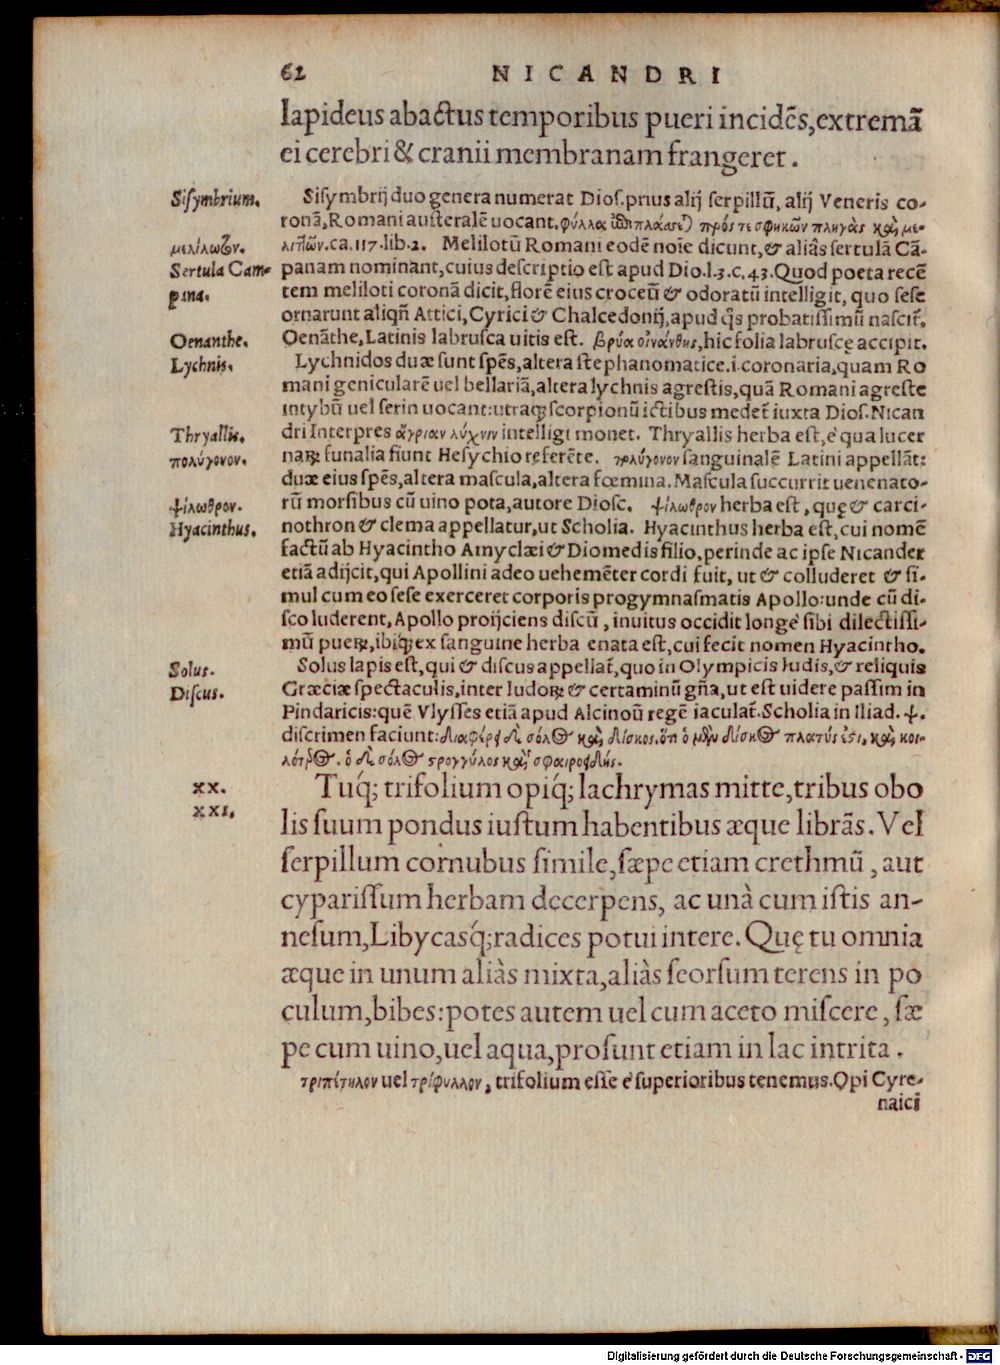 62 NICANDRI
lapideus abactus temporibus pueri incidēs,extremā
ei cerebri & cranii membranam frangeret.
Sisymbrium. Sisymbrij duo genera numerat Dios.prius alij serpillū, alij Veneris co-
ronā,Romani austeralē uocant. φύλλα πρός τε σφηκῶν πληγὰς καὶ με-
μελίλωτον. λιττῶν.ca.117.lib.2. Melilotū Romani eodē noīe dicunt,& aliâs sertulā Cā-
Sertula Cam- panam nominant,cuius descriptio est apud Dio.l.3.c.43.Quod poeta recē
pana. tem meliloti coronā dicit, florē eius croceū & odoratū intelligit, quo sese
ornarunt aliqñ Attici, Cyrici & Chalcedonij,apud q̃s probatissimū nascit̃.
Oenanthe. Oenāthe,Latinis labrusca uitis est. βρύα οἰνάνθης,hic folia labruscę accipit.
Lychnis. Lychnidos duæ sunt spēs,altera stephanomatice.i.coronaria,quam Ro
mani genicularē uel bellariā,altera lychnis agrestis,quā Romani agreste
intybū uel serin uocant:utraq; scorpionū ictibus medet̃ iuxta Dios.Nican
Thryallis. dri Interpres ἄγριαν λύχνιν intelligi monet. Thryallis herba est,è qua lucer
πολύγονον. naꝝ funalia fiunt Hesychio referēte. πολύγονον sanguinalē Latini appellāt:
duæ eius spēs,altera mascula,altera fœmina. Mascula succurrit uenenato-
ψίλωθρον. rū morsibus cū uino pota,autore Diosc. ψίλωθρον herba est, quę & carci-
Hyacinthus. nothron & clema appellatur,ut Scholia. Hyacinthus herba est, cui nomē
factū ab Hyacintho Amyclæi & Diomedis filio,perinde ac ipse Nicander
etiā adijcit,qui Apollini adeo uehemēter cordi fuit, ut & colluderet & si-
mul cum eo sese exerceret corporis progymnasmatis Apollo:unde cū di-
sco luderent, Apollo proijciens discū, inuitus occidit longè sibi dilectissi-
mū pueꝝ,ibiq; ex sanguine herba enata est, cui fecit nomen Hyacintho.
Solus. Solus lapis est, qui & discus appellat̃,quo in Olympicis ludis,& reliquis
Discus. Græciæ spectaculis,inter ludoꝝ & certaminū gña,ut est uidere passim in
Pindaricis:quē Vlysses etiā apud Alcinoū regē iaculat̃.Scholia in Iliad. ψ.
discrimen faciunt: διαφέρει δὲ σόλος καὶ δίσκος. ὅτι ὁ μὲν δίσκος πλατύς ἐστι, καὶ κοι-
λότερος. ὁ δὲ σόλος στρογγύλος καὶ σφαιροειδής.
XX. Tuq́; trifolium opiq́; lachrymas mitte,tribus obo
XXI. lis suum pondus iustum habentibus æque librās. Vel
serpillum cornubus simile,sæpe etiam crethmū, aut
cyparissum herbam decerpens, ac unà cum istis an-
nesum,Libycasq́;radices potui intere. Quę tu omnia
æque in unum aliàs mixta,aliàs seorsum terens in po
culum,bibes:potes autem uel cum aceto miscere, sæ
pe cum uino,uel aqua,prosunt etiam in lac intrita.
τριπέτηλον uel τρίφυλλον, trifolium esse è superioribus tenemus.Opi Cyre-
naici
Digitalisierung gefördert durch die Deutsche Forschungsgemeinschaft - DFG